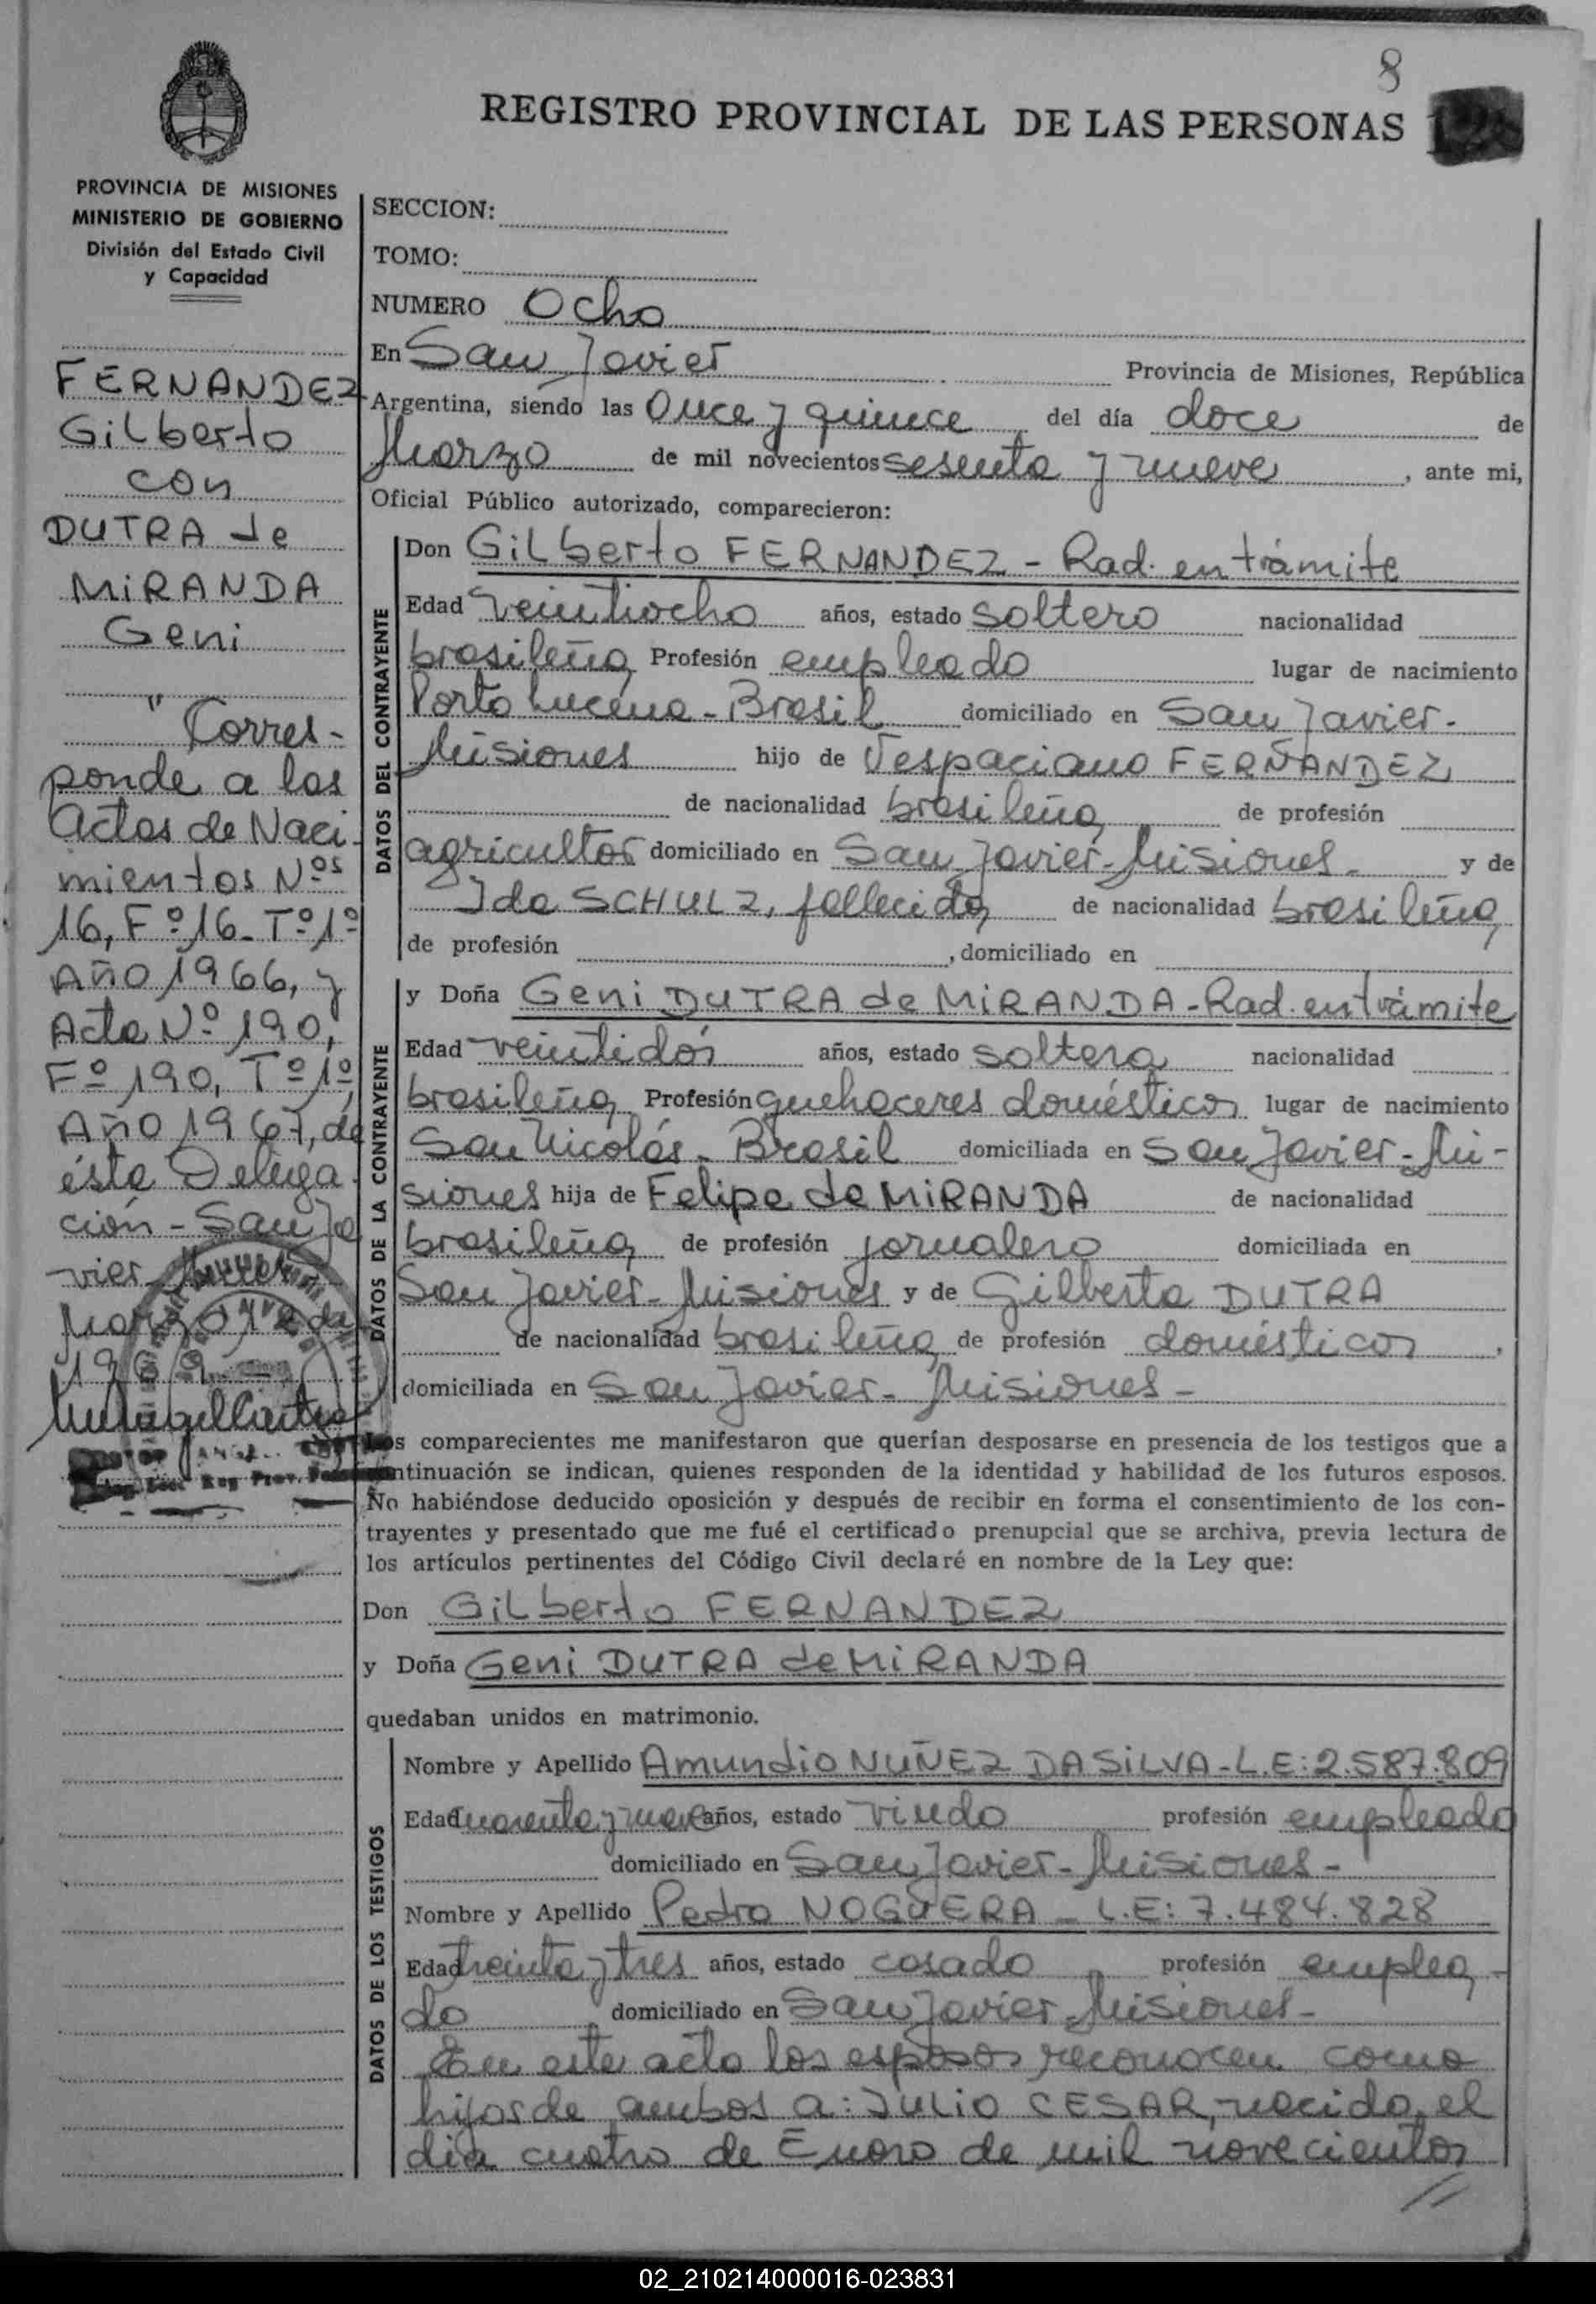 8
REGISTRO PROVINCIAL DE LAS PERSONAS
PROVINCIA DE MISIONES
MINISTERIO DE GOBIERNO
División del Estado Civil
y Capacidad
FERNANDEZ
Gilberto
con
DUTRA de
MIRANDA
Geni
"Corres-
ponde a las
Actas de Naci-
mientos Nos
16, Fº 16- Tº 1º
Año 1966, y
Acta Nº 190,
Fº 190, Tº 1º,
Año 1967, de
ésta Delega-
ción - San Ja
vier
Marzo 12 de
1969
SECCION:
TOMO:
NUMERO Ocho
En San Javier Provincia de Misiones, República
Argentina, siendo las Once y quince del día doce de
Marzo de mil novecientos sesenta y nueve, ante mi,
Oficial Público autorizado, comparecieron:
DATOS DEL CONTRAYENTE
Don Gilberto FERNANDEZ - Rad. en trámite
Edad veintiocho años, estado soltero nacionalidad
brasileña Profesión empleado lugar de nacimiento
Porto Lucena - Brasil domiciliado en San Javier-
Misiones hijo de Vespaciano FERNANDEZ
de nacionalidad brasileña de profesión
agricultor domiciliado en San Javier-Misiones- y de
Ida SCHULZ, fallecida, de nacionalidad brasileña,
de profesión , domiciliado en
DATOS DE LA CONTRAYENTE
y Doña Geni DUTRA de MIRANDA - Rad. en trámite
Edad veintidós años, estado soltera nacionalidad
brasileña, Profesión quehaceres domésticos lugar de nacimiento
San Nicolás - Brasil domiciliada en San Javier - Mi-
siones hija de Felipe de MIRANDA de nacionalidad
brasileña, de profesión jornalero domiciliada en
San Javier - Misiones y de Gilberta DUTRA
de nacionalidad brasileña, de profesión domésticos,
domiciliada en San Javier - Misiones -
Los comparecientes me manifestaron que querían desposarse en presencia de los testigos que a
continuación se indican, quienes responden de la identidad y habilidad de los futuros esposos.
No habiéndose deducido oposición y después de recibir en forma el consentimiento de los con-
trayentes y presentado que me fué el certificado prenupcial que se archiva, previa lectura de
los artículos pertinentes del Código Civil declaré en nombre de la Ley que:
Don Gilberto FERNANDEZ
y Doña Geni DUTRA de MIRANDA
quedaban unidos en matrimonio.
DATOS DE LOS TESTIGOS
Nombre y Apellido Amundio NUÑEZ DA SILVA - L.E: 2.587.809
Edad cuarenta y nueve años, estado viudo profesión empleado
domiciliado en San Javier - Misiones -
Nombre y Apellido Pedro NOGUERA - L.E: 7.484.828
Edad treinta y tres años, estado casado profesión emplea-
do domiciliado en San Javier Misiones-
En este acto los esposos reconocen como
hijos de ambos a: JULIO CESAR, nacido el
día cuatro de Enero de mil novecientos
//
02_210214000016-023831